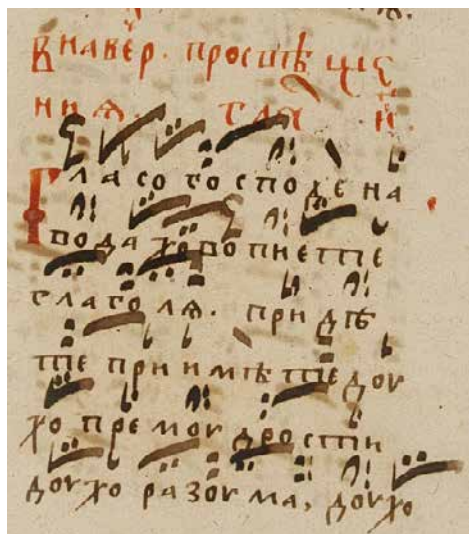 В навер. просвѣще
ния. глас н҃.
Гласо господе на
водахо вопиете
глаголя. придѣ
те приимѣте дꙋ
хо премꙋдрости
дꙋхо разꙋма, дꙋхо